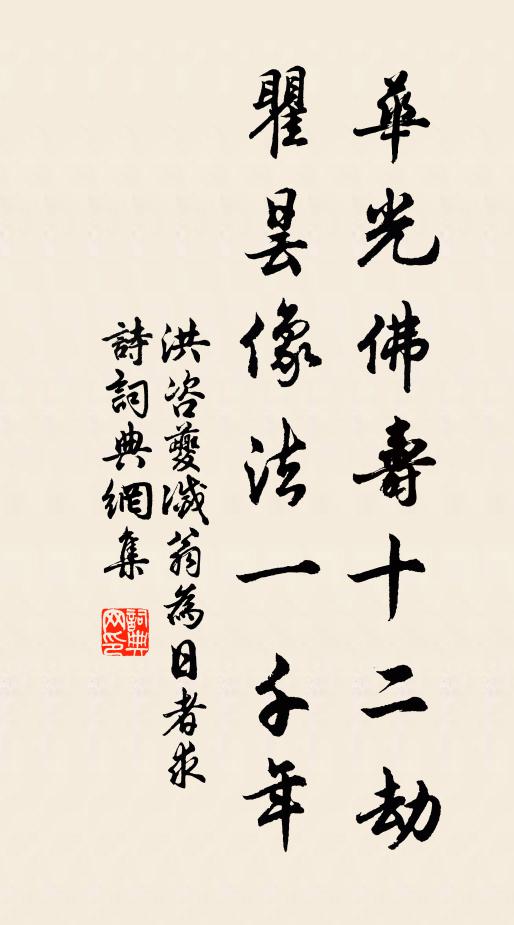 華光佛壽十二劫
瞿曇像法一千年
洪咨夔滅翁為日者求
詩詞典網集
詞典網印